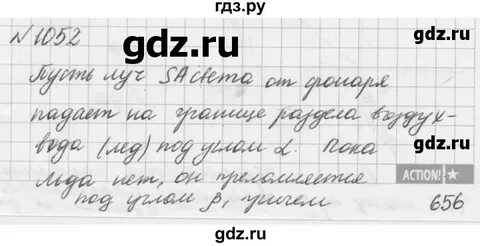 гдз.ру
№1052
gdz.ru
gdz.ru
Пусть луч SA света от фонаря
падает на границе раздела воздух-
вода (лед) под углом α. Пока
льда нет, он преломляется
ACTION!
под углом β, причем
656
gdz.ru
gdz.ru